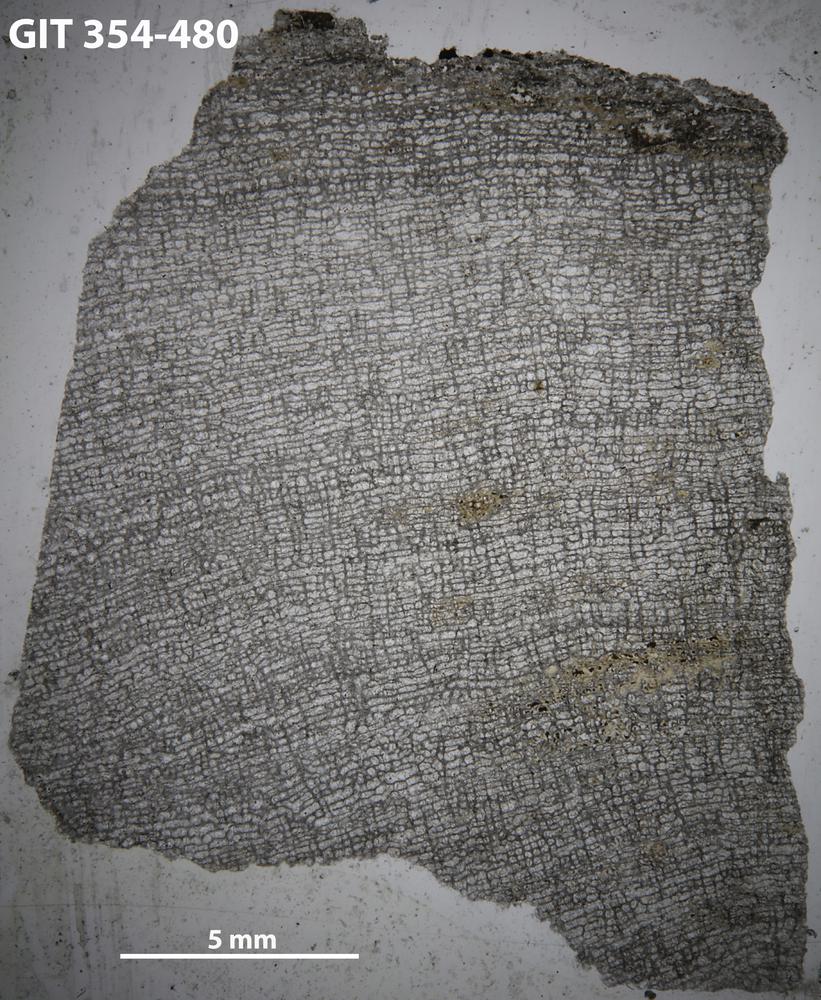 GIT 354-480
5 mm